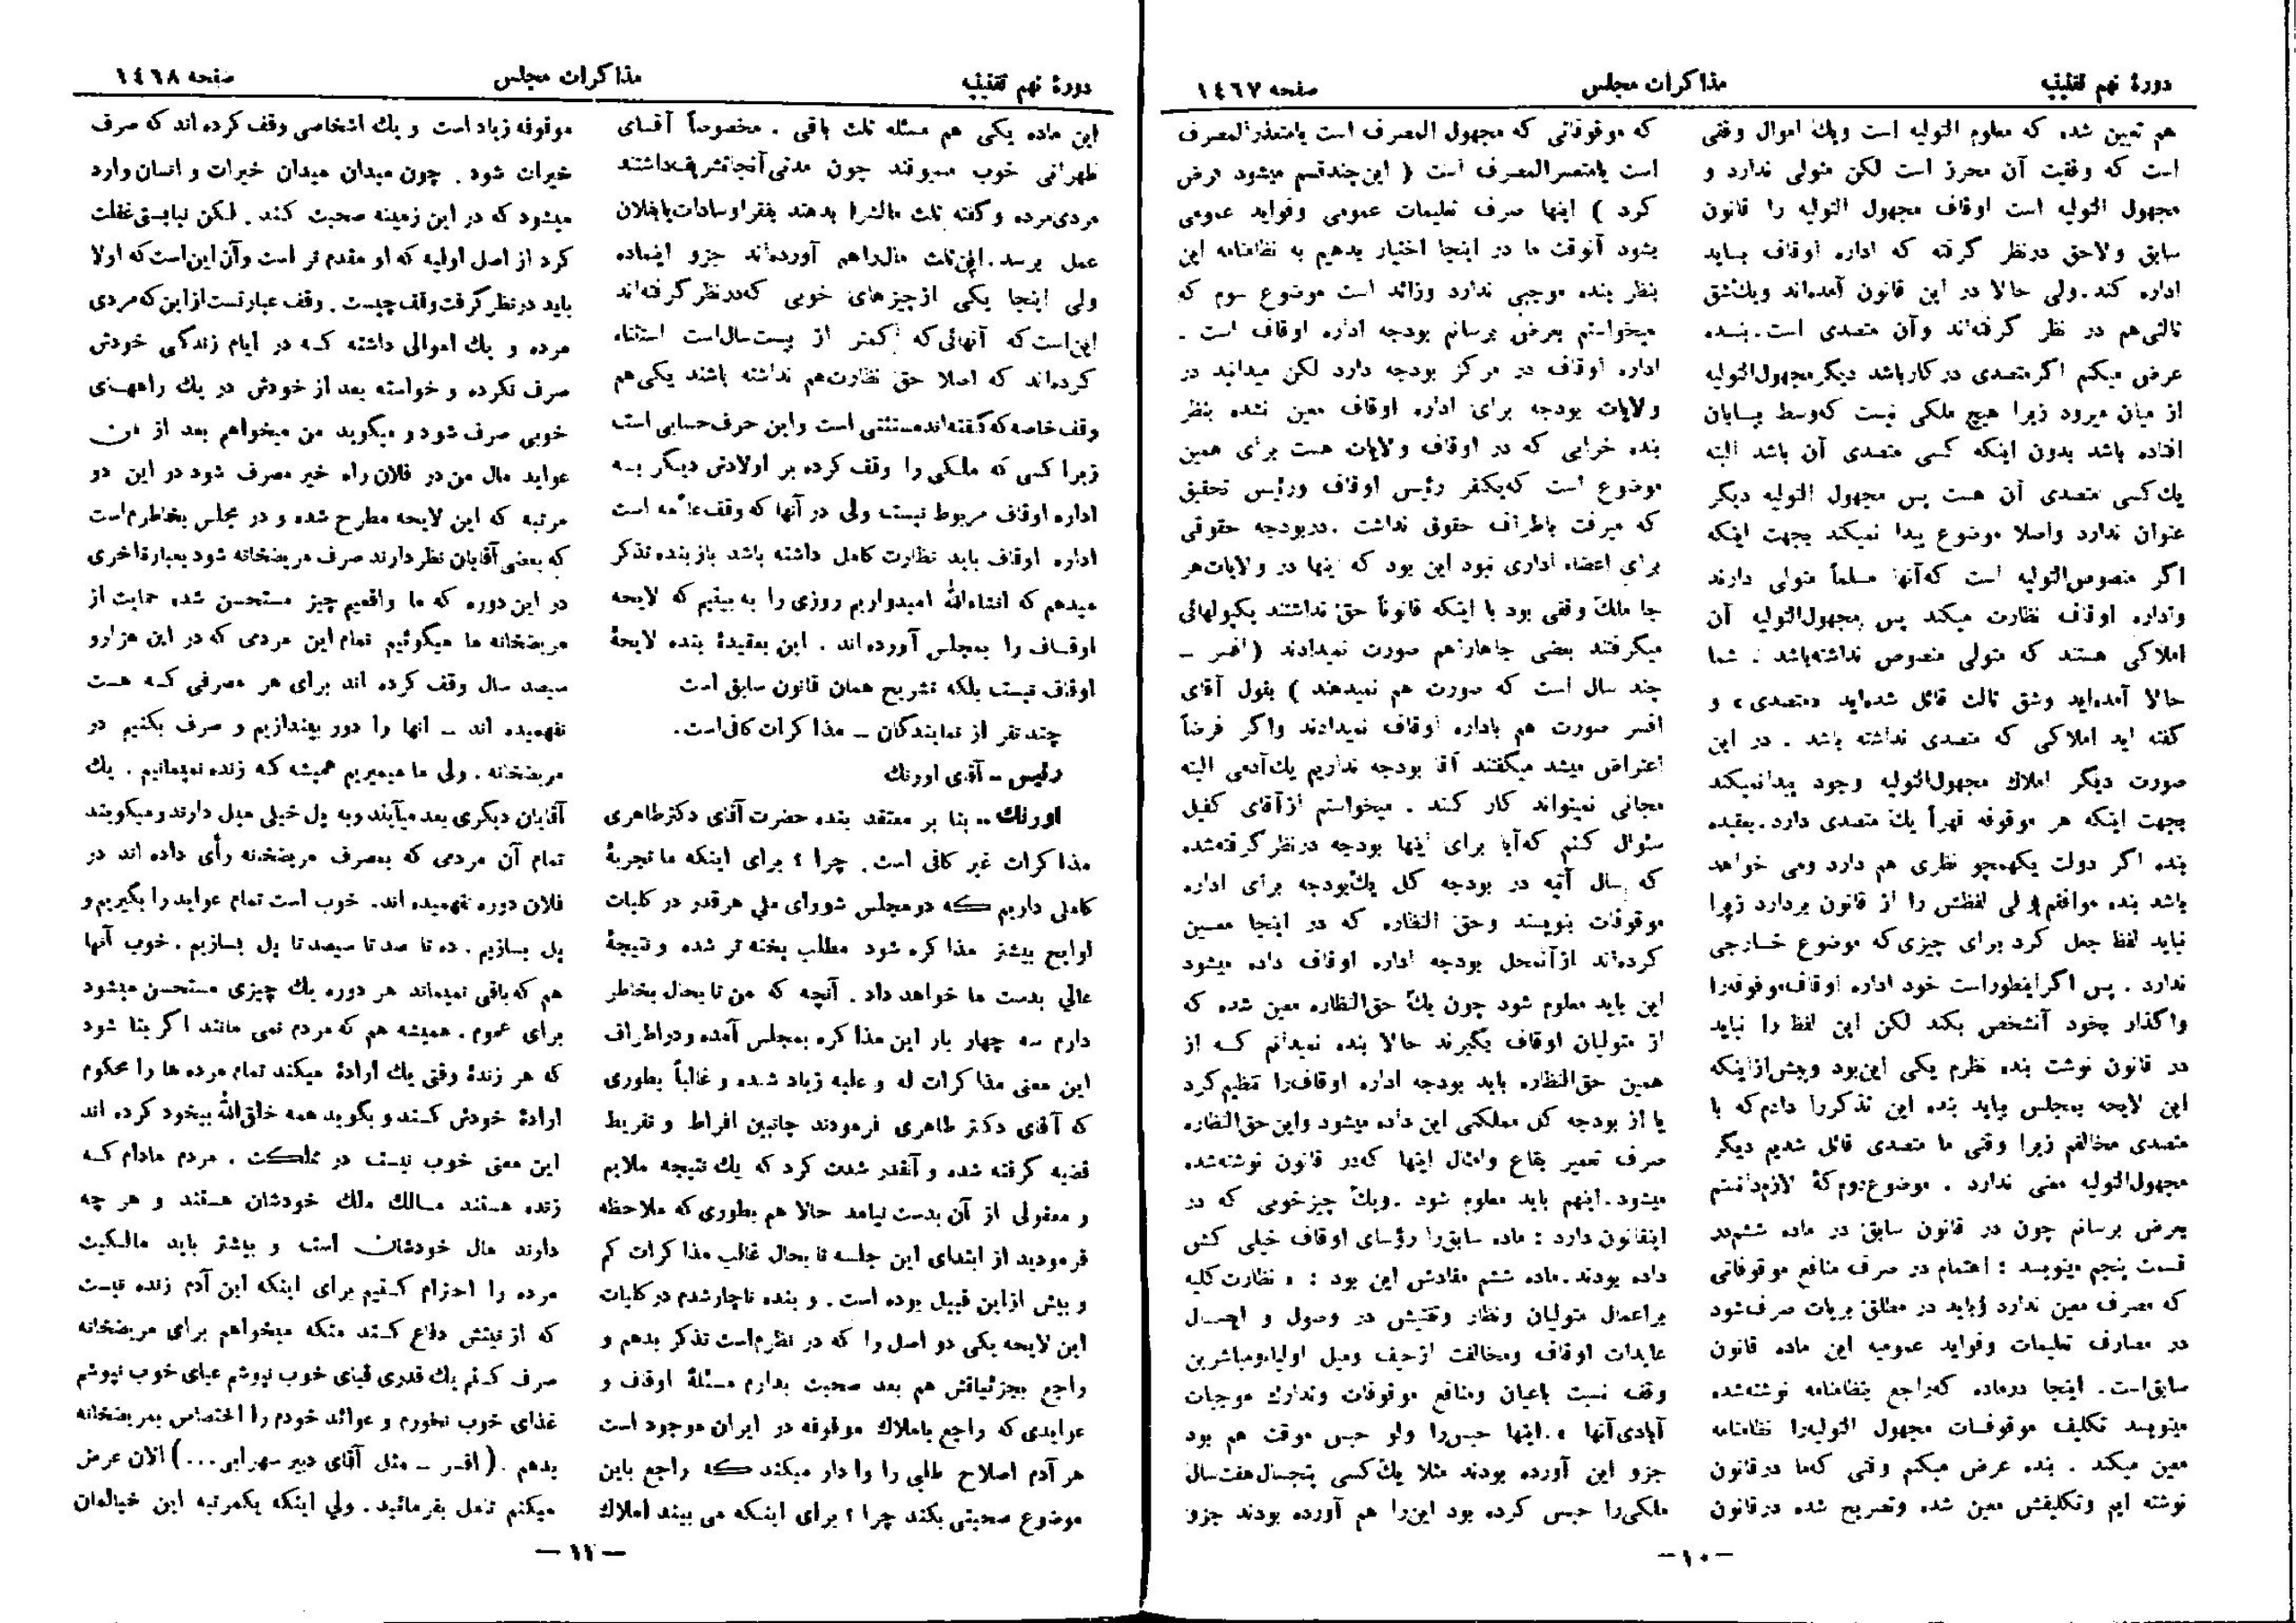 دورهٔ نهم تقنینیه
مذاکرات مجلس
صفحه ۱٤٦۷
هم تعیین شده که معلوم التولیه است ویک اموال وقفی
است که وقفیت آن محرز است لکن متولی ندارد و
مجهول التولیه است اوقاف مجهول التولیه را قانون
سابق ولاحق درنظر گرفته که اداره اوقاف بـاید
اداره کند.ولی حالا در این قانون آمده‌اند ویک‌شق
ثالثی‌هم در نظر گرفته‌اند وآن متصدی است.بنـده
عرض میکنم اگرمتصدی درکارباشد دیگرمجهول‌التولیه
از میان میرود زیرا هیچ ملکی نیست که‌وسط بیـابان
افتاده باشد بدون اینکه کسی متصدی آن باشد البته
یك‌کسی متصدی آن هست پس مجهول التولیه دیگر
عنوان ندارد واصلا موضوع پیدا نمیکند بجهت اینکه
اگر منصوص‌التولیه است که‌آنها مسلماً متولی دارند
واداره اوقاف نظارت میکند پس مجهول‌التولیه آن
املاکی هستند که متولی منصوص نداشته‌باشد . شما
حالا آمده‌اید وشق ثالث قائل شده‌اید «متصدی» و
گفته اید املاکی که متصدی نداشته باشد . در این
صورت دیگر املاك مجهول‌التولیه وجود پیدانمیکند
بجهت اینکه هر موقوفه قهراً یك متصدی دارد.بعقیده
بنده اگر دولت یکهمچو نظری هم دارد ومی خواهد
باشد بنده موافقم ولی لفظش را از قانون بردارد زیرا
نباید لفظ جعل کرد برای چیزی‌که موضوع خـارجی
ندارد . پس اگراینطوراست خود اداره اوقاف‌موقوفه‌را
واگذار بخود آنشخص بکند لکن این لفظ را نباید
در قانون نوشت بنده نظرم یکی این‌بود وپیش‌ازاینکه
این لایحه بمجلس بیاید بنده این تذکررا دادم‌که با
متصدی مخالفم زیرا وقتی ما متصدی قائل شدیم دیگر
مجهول‌التولیه معنی ندارد . موضوع‌دوم‌که لازم‌دانستم
بعرض برسانم چون در قانون سابق در ماده ششم‌در
قسمت پنجم مینویسد : اهتمام در صرف منافع موقوفاتی
که مصرف معین ندارد وباید در مطلق بریات صرف‌شود
در مصارف تعلیمات وفواید عمومیه این ماده قانون
سابق‌است. اینجا درماده که‌راجع بنظامنامه نوشته‌شده
مینویسد تکلیف موقوفـات مجهول التولیه‌را نظامنامه
معین میکند . بنده عرض میکنم وقتی که‌ما درقانون
نوشته ایم وتکلیفش معین شده وتصریح شده درقانون
که موقوفاتی که مجهول المصرف است یامتعذرالمصرف
است یامتعسرالمصرف است ( این‌چندقسم میشود فرض
کرد ) اینها صرف تعلیمات عمومی وفواید عمومی
بشود آنوقت ما در اینجا اختیار بدهیم به نظامنامه این
بنظر بنده موجبی ندارد وزائد است موضوع سوم که
میخواستم بعرض برسانم بودجه اداره اوقاف است .
اداره اوقاف در مرکز بودجه دارد لکن میدانید در
ولایات بودجه برای اداره اوقاف معین نشده بنظر
بنده خرابی که در اوقاف ولایات هست برای همین
موضوع است که‌یکنفر رئیس اوقاف ورئیس تحقیق
که میرفت باطراف حقوق نداشت .دربودجه حقوقی
برای اعضاء اداری نبود این بود که اینها در ولایات‌هر
جا ملك وقفی بود با اینکه قانوناً حق نداشتند یکپولهائی
میگرفتند بعضی جاهاراهم صورت نمیدادند (افسر ـ
چند سال است که صورت هم نمیدهند ) بقول آقای
افسر صورت هم باداره اوقاف نمیدادند واگر فرضاً
اعتراض میشد میگفتند آقا بودجه نداریم یك‌آدمی البته
مجانی نمیتواند کار کند . میخواستم ازآقای کفیل
سئوال کنم که‌آیا برای اینها بودجه درنظرگرفته‌شده
که سال آتیه در بودجه کل یك‌بودجه برای اداره
موقوفات بنویسند وحق النظاره که در اینجا معـین
کرده‌اند ازآنمحل بودجه اداره اوقاف داده میشود
این باید معلوم شود چون یك حق‌النظاره معین شده که
از متولیان اوقاف بگیرند حالا بنده نمیدانم کـه از
همین حق‌النظاره باید بودجه اداره اوقاف‌را تنظیم‌کرد
یا از بودجه کل مملکتی این داده میشود واین‌حق‌النظاره
صرف تعمیر بقاع وامثال اینها که‌در قانون نوشته‌شده
میشود.اینهم باید معلوم شود .ویك چیزخوبی که در
اینقانون دارد : ماده سابق‌را رؤسای اوقاف خیلی کش
داده بودند.ماده ششم مفادش این بود : « نظارت‌کلیه
براعمال متولیان ونظار وتفتیش در وصول و ایصـال
عایدات اوقاف ومخالفت ازحیف ومیل اولیاءومباشرین
وقف نسبت باعیان ومنافع موقوفات وتدارك موجبات
آبادی‌آنها » .اینها حبس‌را ولو حبس موقت هم بود
جزو این آورده بودند مثلا یك‌کسی پنجسال‌هفت‌سال
ملکی‌را حبس کرده بود این‌را هم آورده بودند جزو
ـ ۱۰ ـ
دورهٔ نهم تقنینیه
مذاکرات مجلس
صفحه ۱٤٦۸
این ماده یکی هم مسئله ثلث باقی . مخصوصاً آقـای
طهرانی خوب مسبوقند چون مدتی‌آنجاتشریف‌داشتند
مردی‌مرده و گفته ثلث مالش‌را بدهند بفقراوسادات‌یابفلان
عمل برسد.این‌ثلث مال‌راهم آورده‌اند جزو اینماده
ولی اینجا یکی ازچیزهای خوبی که‌درنظرگرفته‌اند
این‌است‌که آنهائی‌که کمتر از بیست‌سال‌است استثناء
کرده‌اند که اصلا حق نظارت‌هم نداشته باشند یکی‌هم
وقف‌خاصه‌که‌گفته‌اندمستثنی است واین حرف‌حسابی است
زیرا کسی که ملکی را وقف کرده بر اولادش دیگر بـه
اداره اوقاف مربوط نیست ولی در آنها که وقف‌عامه است
اداره اوقاف باید نظارت کامل داشته باشد بازبنده‌تذکر
میدهم که انشاءالله امیدواریم روزی را به بینیم که لایحه
اوقـاف را بمجلس آورده‌اند . این بعقیدهٔ بنده لایحهٔ
اوقاف نیست بلکه تشریح همان قانون سابق است
چند نفر از نمایندگان ـ مذاکرات کافی‌است.
رئیس ـ آقای اورنك
اورنك ـ بنا بر معتقد بنده حضرت آقای دکترطاهری
مذاکرات غیر کافی است. چرا ؟ برای اینکه ما تجربهٔ
کاملی داریم که در مجلس شورای ملی هرقدر در کلیات
لوایح بیشتر مذاکره شود مطلب پخته تر شده و نتیجهٔ
عالی بدست ما خواهد داد . آنچه که من تا بحال بخاطر
دارم سه چهار بار این مذاکره بمجلس آمده و دراطراف
این معنی مذاکرات له و علیه زیاد شده و غالباً بطوری
که آقای دکتر طاهری فرمودند جانبین افراط و تفریط
قضیه گرفته شده و آنقدر شدت کرد که یك نتیجه ملایم
و معقولی از آن بدست نیامد حالا هم بطوری که ملاحظه
فرمودید از ابتدای این جلسه تا بحال غالب مذاکرات کم
و بیش ازاین قبیل بوده است. و بنده ناچارشدم در کلیات
این لایحه یکی دو اصل را که در نظرم‌است تذکر بدهم و
راجع بجزئیاتش هم بعد صحبت بدارم مسئلهٔ اوقاف و
عوایدی که راجع باملاك موقوفه در ایران موجود است
هر آدم اصلاح طلبی را وادار میکند که راجع باین
موضوع صحبتی بکند چرا ؟ برای اینکه می بیند املاك
موقوفه زیاد است و یك اشخاصی وقف کرده اند که صرف
خیرات شود . چون میدان میدان خیرات و انسان وارد
میشود که در این زمینه صحبت کند. لکن نبایستی غفلت
کرد از اصل اولیه که او مقدم تر است وآن این‌است‌که اولا
باید درنظر گرفت وقف چیست . وقف عبارتست‌ازاین که مردی
مرده و یك اموالی داشته کـه در ایام زندگی خودش
صرف نکرده و خواسته بعد از خودش در یك راههـای
خوبی صرف شود و میگوید من میخواهم بعد از من
عواید مال من در فلان راه خیر مصرف شود در این دو
مرتبه که این لایحه مطرح شده و در مجلس بخاطرم‌است
که بعضی آقایان نظر دارند صرف مریضخانه شود بعبارةاخری
در این دوره که ما واقعیم چیز مستحسن شده حمایت از
مریضخانه ما میگوئیم تمام این مردمی که در این هزارو
سیصد سال وقف کرده اند برای هر مصرفی کـه هست
نفهمیده اند ـ آنها را دور بیندازیم و صرف بکنیم در
مریضخانه . ولی ما میمیریم همیشه که زنده نمیمانیم . یك
آقایان دیگری بعد میآیند وبه پل خیلی میل دارند ومیگویند
تمام آن مردمی که بمصرف مریضخانه رأی داده اند در
فلان دوره نفهمیده اند. خوب است تمام عواید را بگیریم و
پل بسازیم . ده تا صد تا سیصد تا پل بسازیم . خوب آنها
هم که باقی نمیماند هر دوره یك چیزی مستحسن میشود
برای عموم . همیشه هم که مردم نمی مانند اگر بنا شود
که هر زندهٔ وفق یك ارادهٔ میکند تمام مرده ها را محکوم
ارادهٔ خودش کند و بگوید همه خلق‌الله بیخود کرده اند
این معنی خوب نیست در مملکت . مردم مادام کـه
زنده هستند مـالك ملك خودشان هستند و هر چه
دارند مال خودشان است و بیشتر باید مالکیت
مرده را احترام کنیم برای اینکه این آدم زنده نیست
که از نیتش دفاع کند منکه میخواهم برای مریضخانه
صرف کنم یك قدری قبای خوب نپوشم عبای خوب نپوشم
غذای خوب نخورم و عوائد خودم را اختصاص بمریضخانه
بدهم .( افسر ـ مثل آقای دبیر سهرابی...) الان عرض
میکنم تأمل بفرمائید . ولی اینکه یکمرتبه این خیالمان
ـ ۱۱ ـ